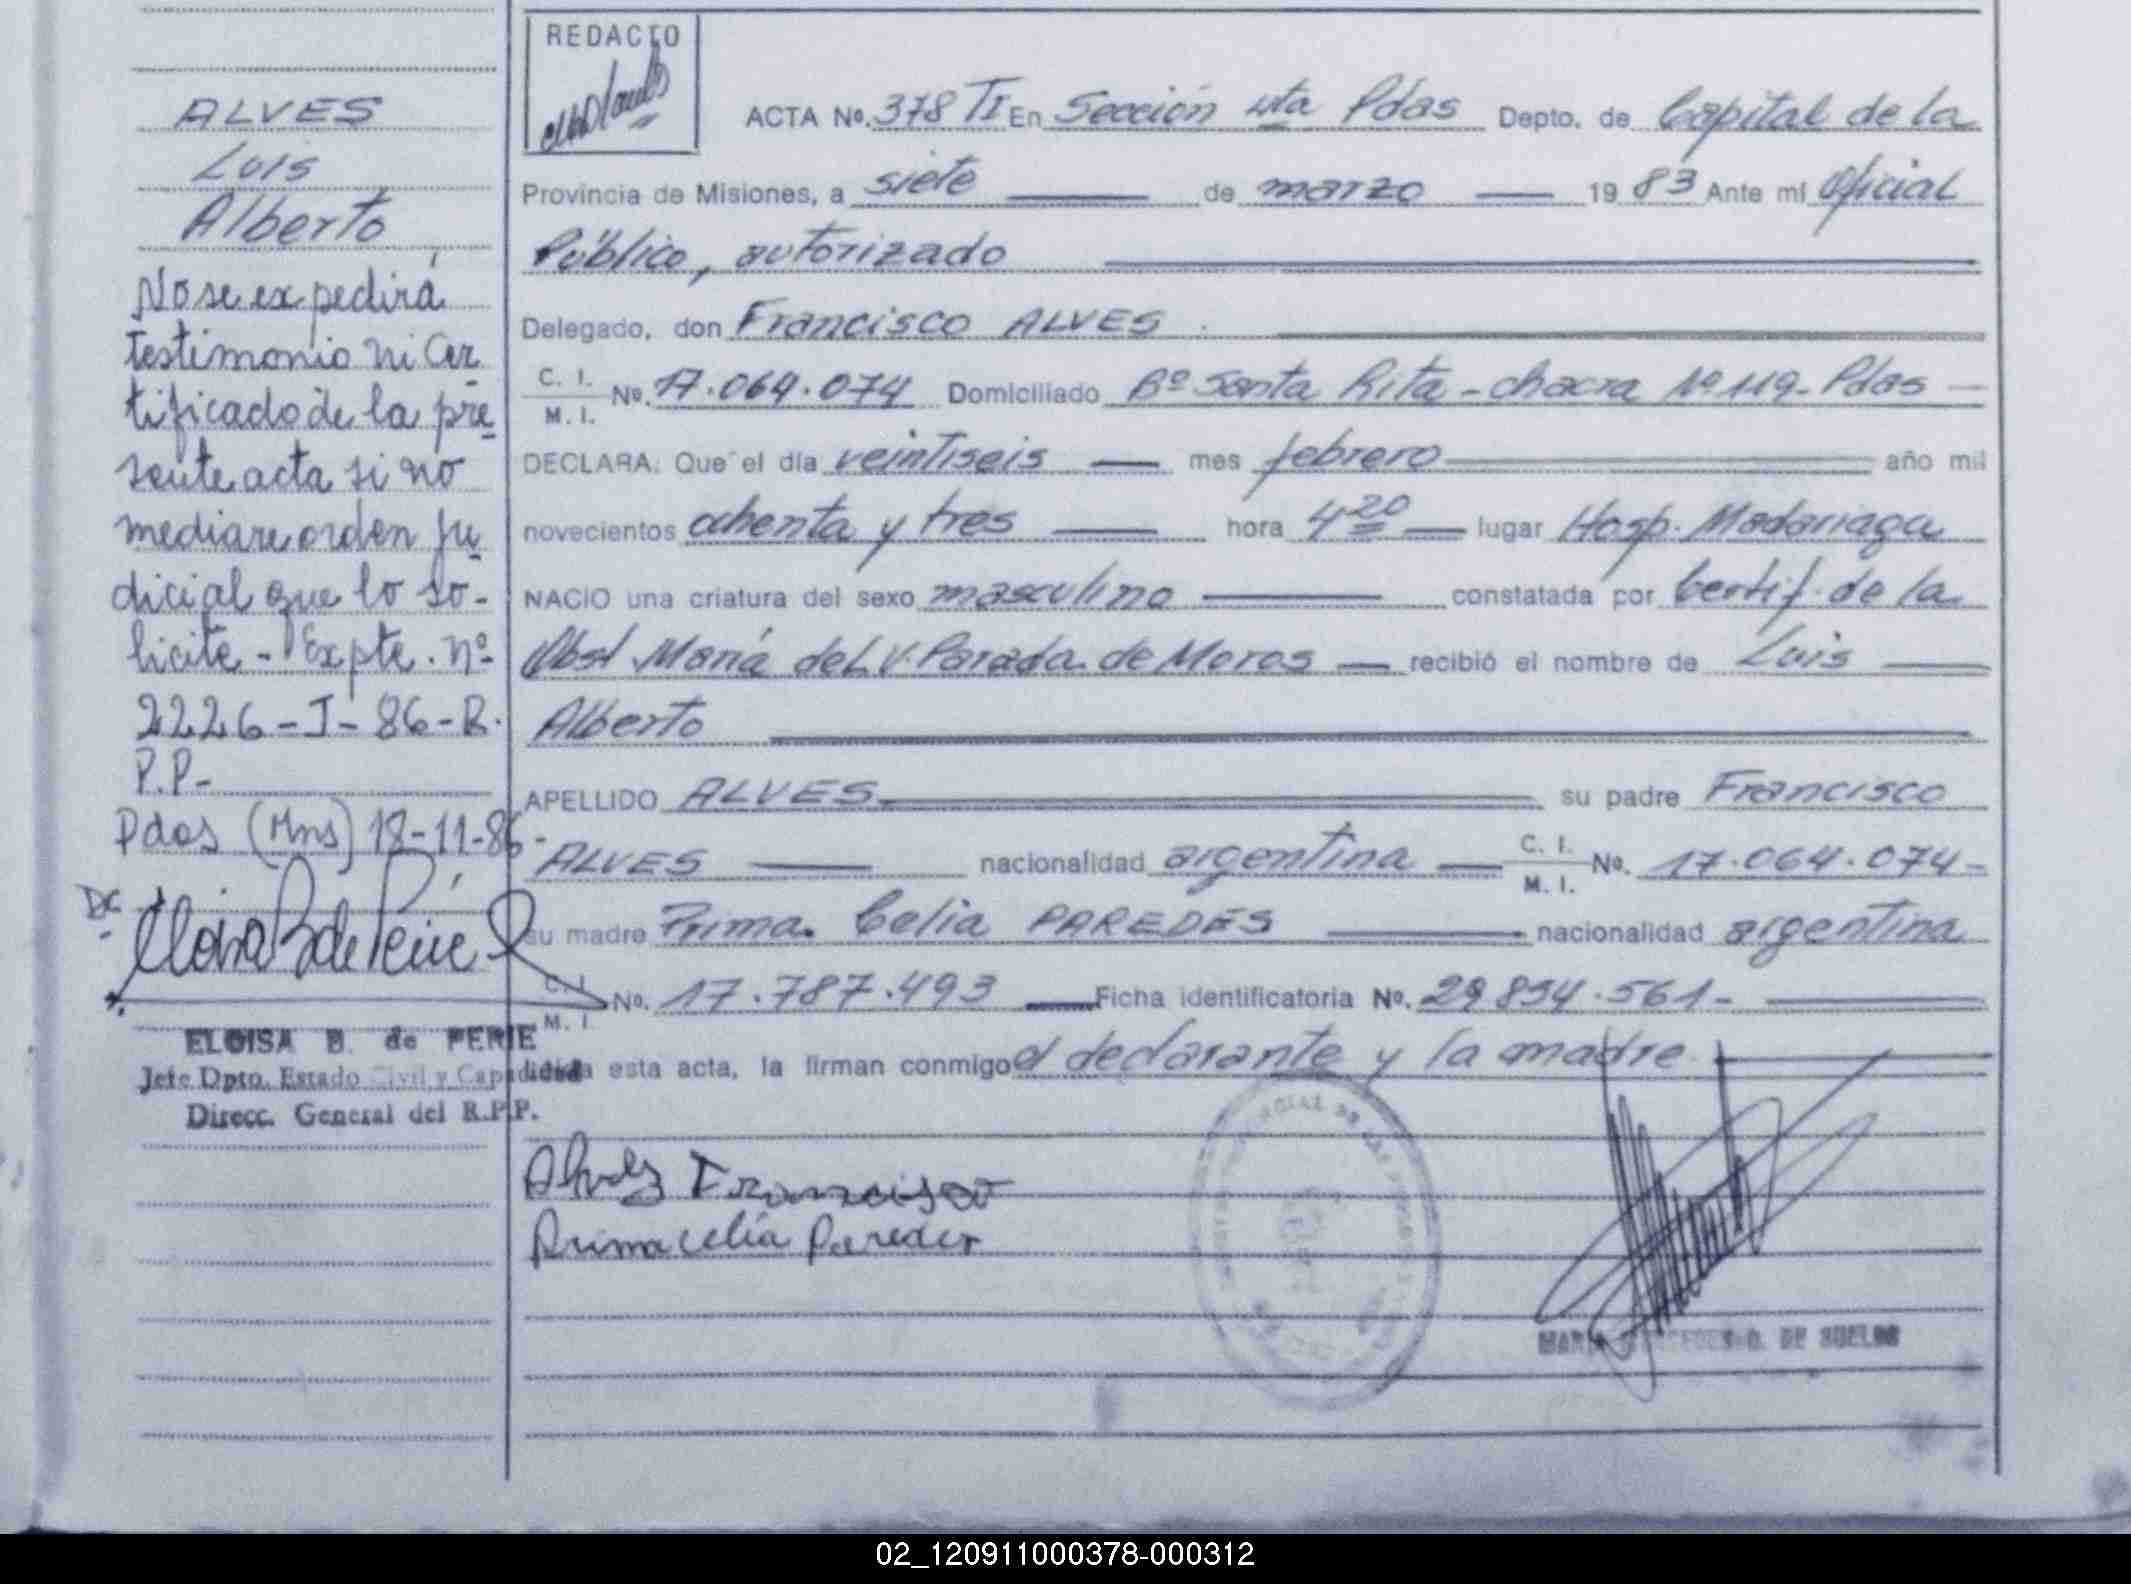 ALVES
Luis
Alberto
No se expedirá
testimonio ni Cer
tificado de la pre
sente acta si no
mediare orden ju
dicial que lo so-
licite - Expte. nº
2226-J-86-R.
P.P-
Pdas (Mns) 18-11-86-
ELOISA B. de PERIE
Jefe Dpto. Estado Civil y Capacidad
Direcc. General del R.P.P.
REDACTO
ACTA Nº. 378 TI En Sección 4ta Pdas Depto. de Capital de la
Provincia de Misiones, a siete de marzo 1983 Ante mí Oficial
Público, autorizado
Delegado, don Francisco ALVES
C. I.
M. I. Nº. 17.064.074 Domiciliado Bº Santa Rita - chacra Nº 119 - Pdas
DECLARA: Que el día veintiseis mes febrero año mil
novecientos ochenta y tres hora 4 20 lugar Hosp. Madariaga
NACIO una criatura del sexo masculino constatada por Certif. de la
Obst. María del V. Parada de Moros recibió el nombre de Luis
Alberto
APELLIDO ALVES su padre Francisco
ALVES nacionalidad argentina C. I. M. I. Nº. 17.064.074-
su madre Prima Celia PAREDES nacionalidad argentina
C. I. M. I. Nº. 17.787.493 Ficha identificatoria Nº. 29.854.561-
esta acta, la firman conmigo el declarante y la madre
Alvez Francisco
Prima celia Paredes
DE SUELOS
02_120911000378-000312